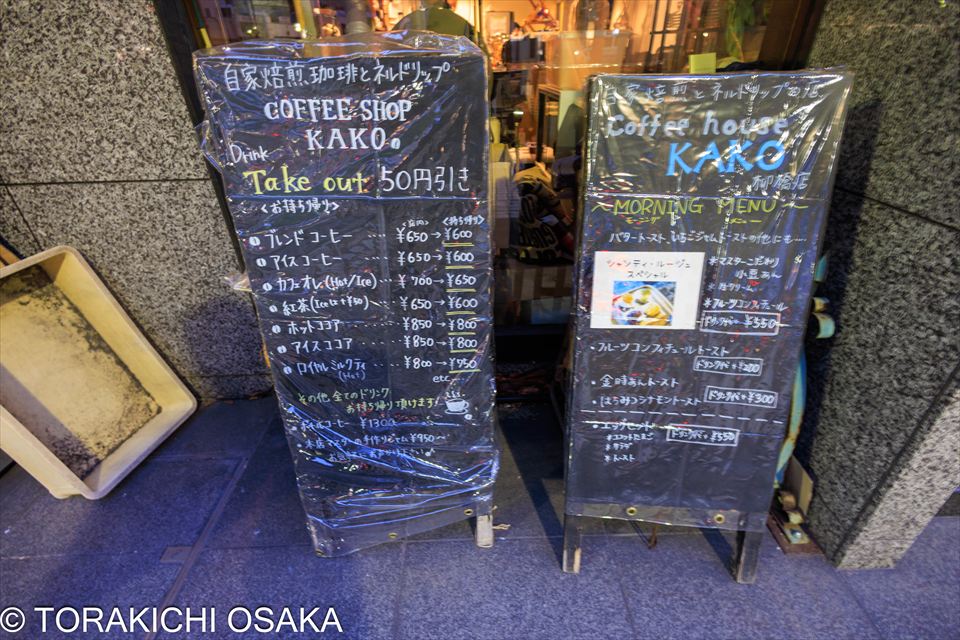 自家焙煎珈琲とネルドリップ
COFFEE SHOP
KAKO
Drink
Take out 50円引き
<お持ち帰り>
<店内> <持ち帰り>
ブレンドコーヒー … ¥650→¥600
アイスコーヒー … ¥650→¥600
カフェオレ(Hot/Ice) … ¥700→¥650
紅茶(Iceは+¥50) ¥650→¥600
ホットココア … ¥850→¥800
アイスココア … ¥850→¥800
ロイヤルミルクティ … ¥800→¥750
(Hot)
etc
その他 全てのドリンク
お持ち帰り頂けます!
ボトルコーヒー ¥1300
本店マスターの手作りジャム¥950~
自家焙煎とネルドリップ
Coffee house
KAKO
柳橋店
~MORNING MENU~
モーニング メニュー
バタートースト、いちごジャムトーストの他にも…
シャンティ・ルージュ
スペシャル
*マスターこだわり
小豆あん
*生クリーム
*フルーツコンフィチュール
ドリンク代+¥550
・フルーツコンフィチュールトースト
ドリンク代+¥200
・金時あんトースト
・はちみつシナモントースト
ドリンク代+¥300
・エッグセット
ドリンク代+¥550
*サラダ
*トースト
© TORAKICHI OSAKA